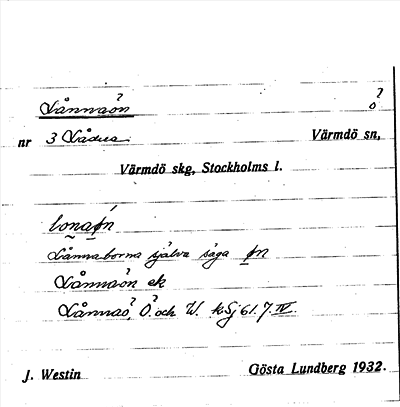 Lånnaön ?
?
o
nr 3 Lådna Värmdö sn,
Värmdö skg, Stockholms l.
lonaøn
Lånnaborna själva säga øn
Lånnaön ek
Lånnaö, Ö. och W. kSj 61. 7. IV.
J. Westin Gösta Lundberg 1932.